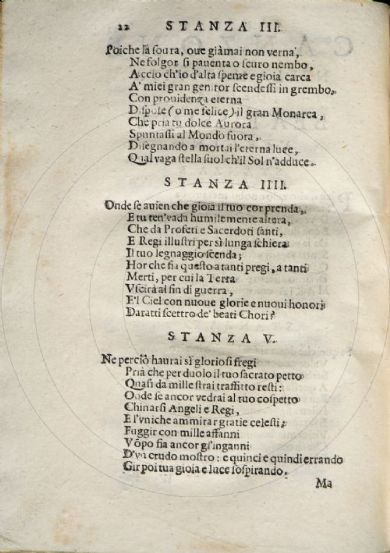 22 STANZA III.
Poiche là soura, oue giàmai non verna,
Ne folgor si pauenta o scuro nembo,
Acciò ch'io d'alta speme e gioia carca
A' miei gran genitor scendessi in grembo,
Con prouidenza eterna
Dispose (o me felice) il gran Monarca,
Che pria tu dolce Aurora
Spuntassi al Mondo fuora,
Disegnando a mortai l'eterna luce,
Qual vaga stella suol ch'il Sol n'adduce.
STANZA IIII.
Onde se auien che gioia il tuo cor prenda,
E tu ten'vada humilemente altera,
Che da Profeti e Sacerdoti santi,
E Regi illustri per sì lunga schiera
Il tuo legnaggio scenda;
Hor che fia questo a tanti pregi, a tanti
Merti, per cui la Terra
Vscirà al fin di guerra,
E'l Ciel con nuoue glorie e nuoui honori
Daratti scettro de' beati Chori?
STANZA V.
Ne perciò haurai sì gloriosi fregi
Prià che per duolo il tuo sacrato petto
Quasi da mille strai traffitto resti:
Onde se ancor vedrai al tuo cospetto
Chinarsi Angeli e Regi,
E l'vniche ammirar gratie celesti;
Fuggir con mille affanni
Vopo fia ancor gl'inganni
D'vn crudo mostro: e quinci e quindi errando
Gir poi tua gioia e luce sospirando.
Ma